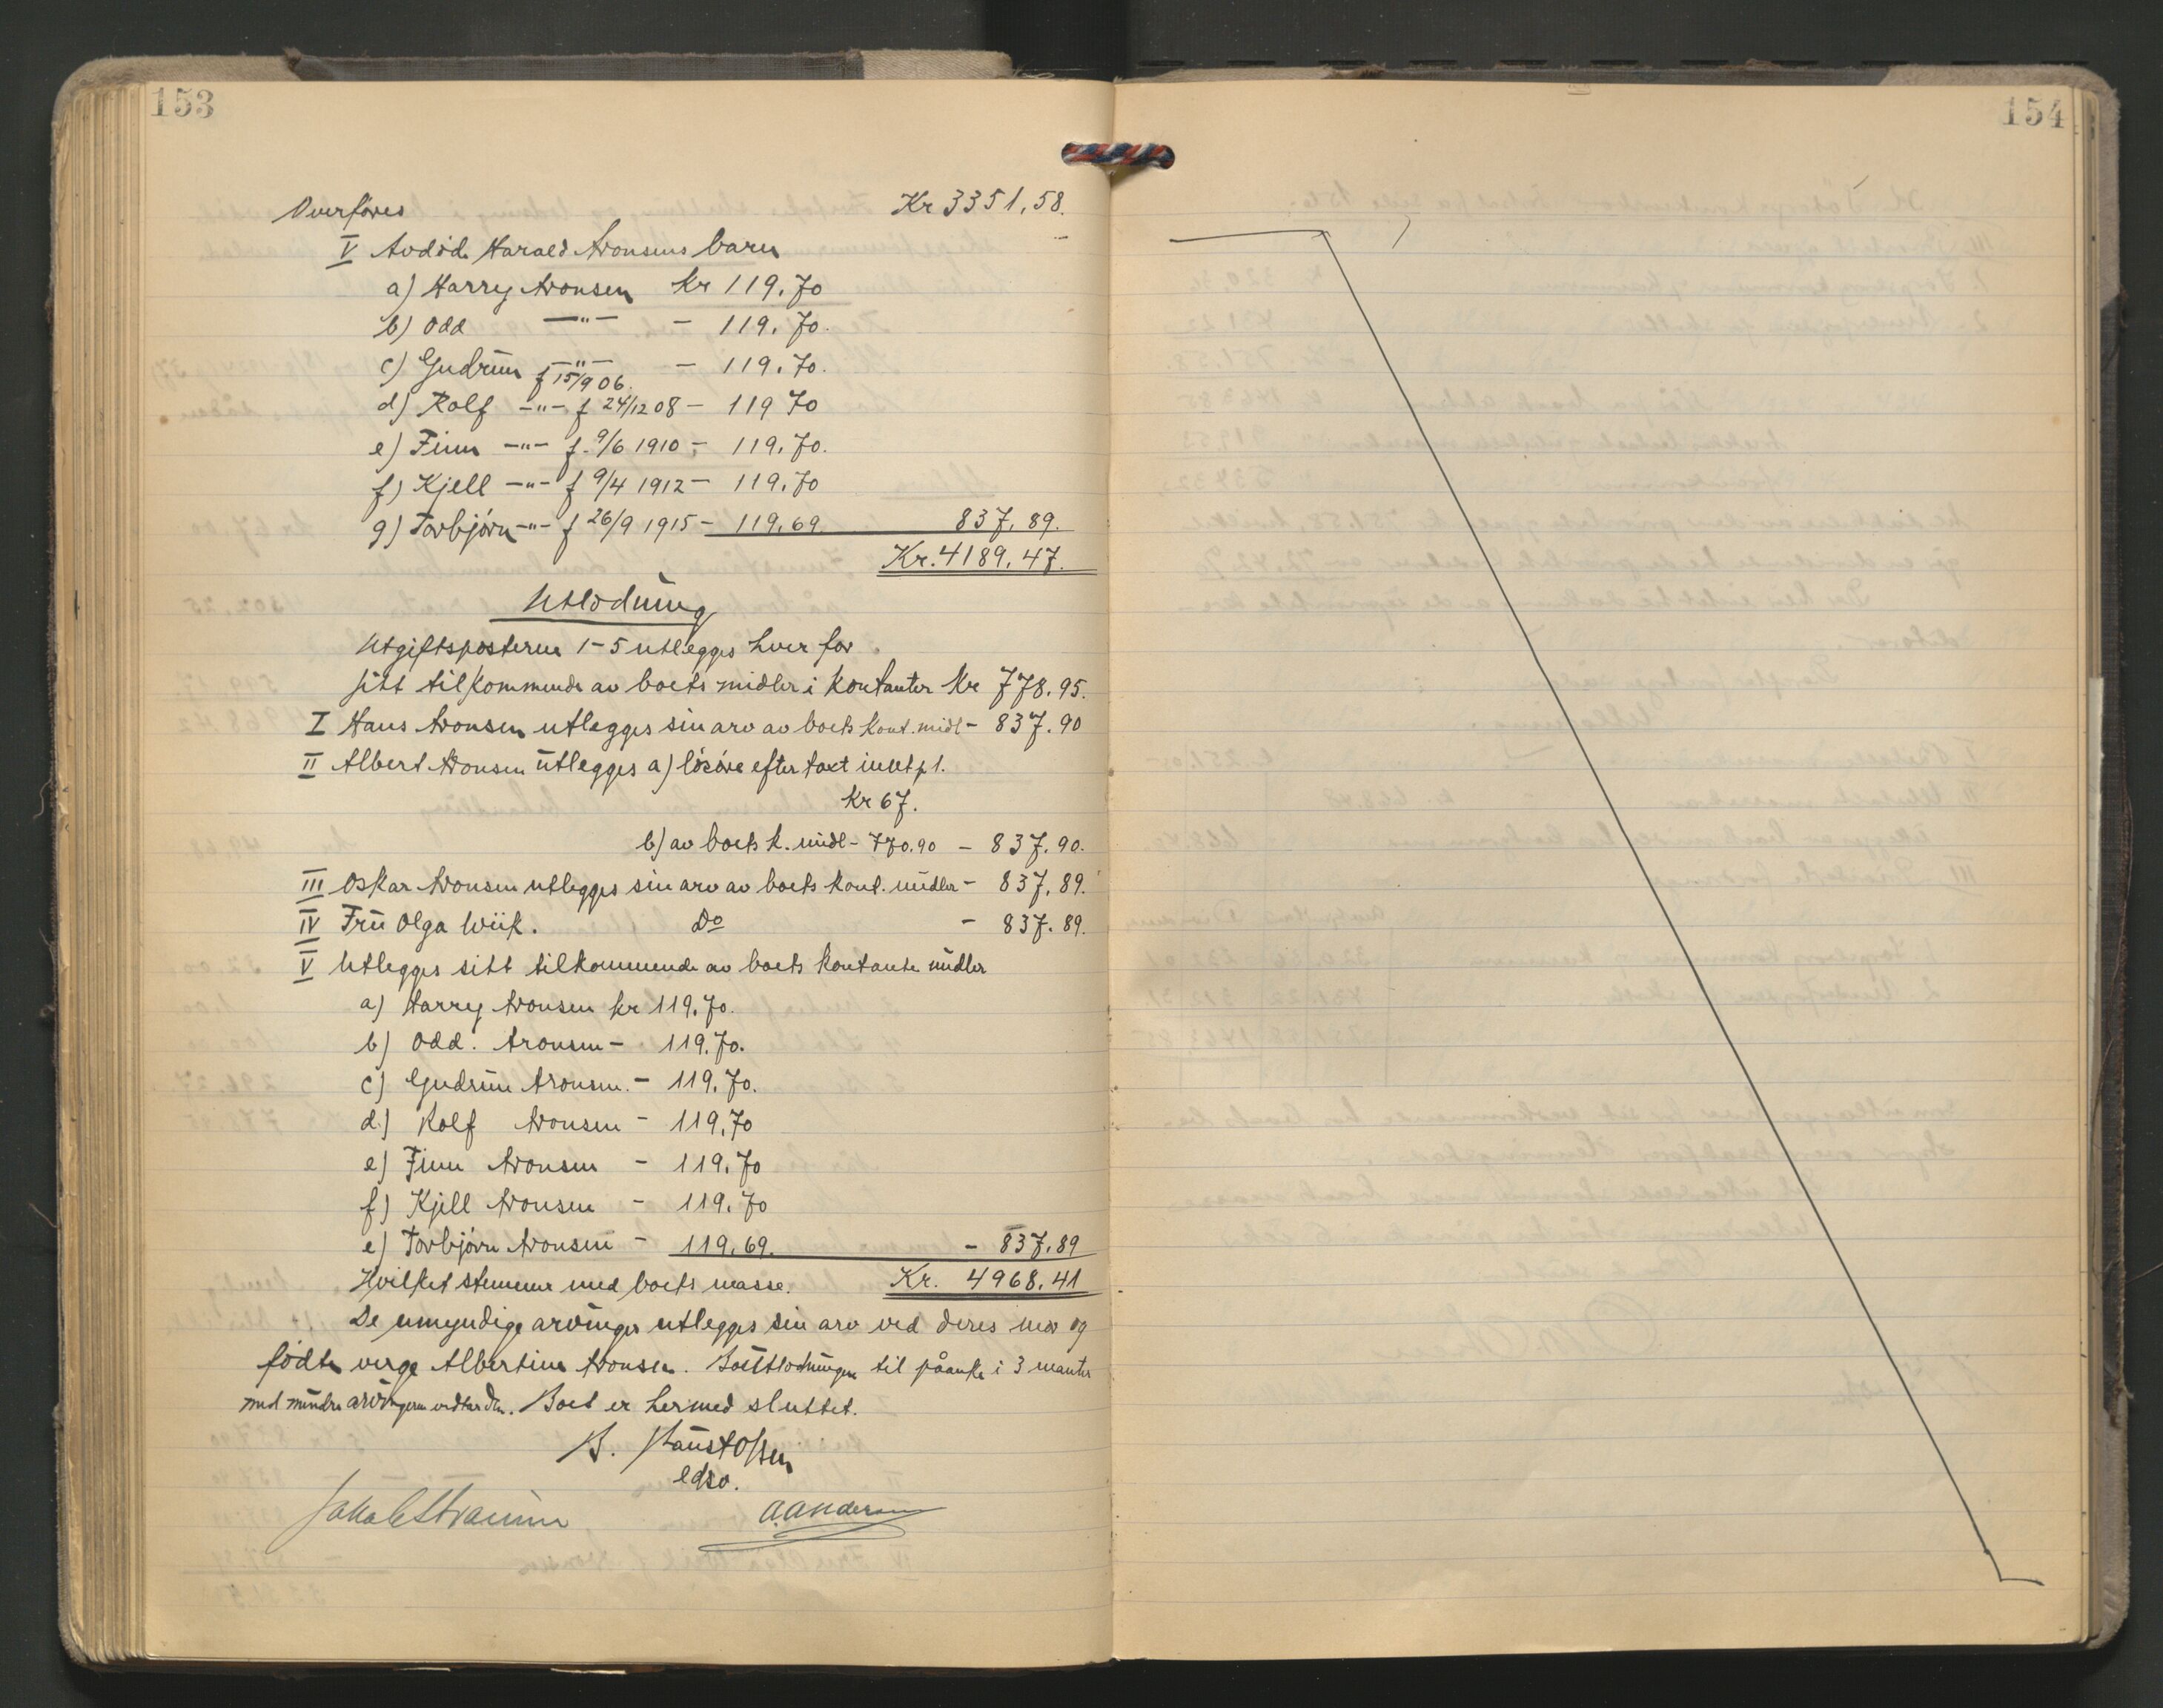 153
Overføres Kr 3351,58.
V Avdöde Harald Aronsens barn
a) Harry Aronsen Kr 119.70
b) Odd —"— - 119.70.
c) Gudrun —"— f 15/9 06. - 119.70.
d) Rolf -"- f 24/12 08 - 119 70
e) Finn -"- f. 9/6 1910 - 119.70.
f) Kjell -"- f 9/4 1912 - 119.70
g) Torbjørn -"- f 26/9 1915 - 119.69. 837.89.
Kr. 4189.47.
Utlodning
Utgiftsposterne 1-5 utlegges hver for
sitt tilkommende av boets midler i kontanter Kr 778.95.
I Hans Aronsen utlegges sin arv av boets kont. midl - 837.90
II Albert Aronsen utlegges a) lösöre efter taxt
Kr 67.
b) av boets k. midl - 770.90 - 837.90.
III Oskar Aronsen utlegges sin arv av boets kont. midler - 837.89.
IV Fru Olga Wiik. Do - 837.89.
V Utlegges sitt tilkommende av boets kontante midler
a) Harry Aronsen kr 119.70.
b) Odd. Aronsen - 119.70.
c) Gudrun Aronsen. - 119.70.
d.) Rolf Aronsen - 119.70
e) Finn Aronsen - 119.70
f) Kjell Aronsen - 119.70
e) Torbjørn Aronsen - 119.69. - 837.89
Hvilket stemmer med boets masse. Kr. 4968.41
De umyndige arvinger utlegges sin arv ved deres mor og
födte verge Albertine Aronsen. til påanke i 3 manter
med mindre arvingerne vedtar den. Boet er hermed sluttet.
edsv.
A. Andersen
154